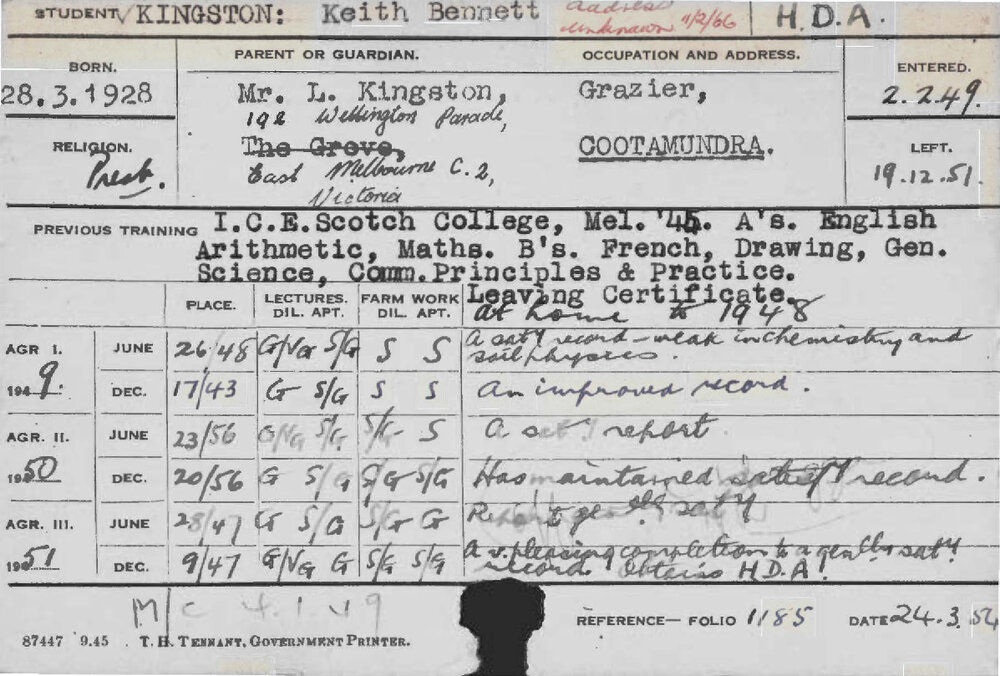 STUDENT KINGSTON: Keith Bennett Address unknown 1/2/66 H.D.A.
BORN. PARENT OR GUARDIAN. OCCUPATION AND ADDRESS. ENTERED.
28.3.1928 Mr. L. Kingston, Grazier, 2.2.49.
192 Wellington Parade,
RELIGION. The Grove, COOTAMUNDRA. LEFT.
Presb. East Melbourne C.2, 19.12.51.
Victoria
PREVIOUS TRAINING I.C.E.Scotch College, Mel. '45. A's. English
Arithmetic, Maths. B's. French, Drawing, Gen.
Science, Comm.Principles & Practice.
Leaving Certificate.
PLACE. LECTURES. DIL. APT. FARM WORK DIL. APT. at home to 1948
AGR I. JUNE 26/48 G/VG S/G S S A sat'y record - weak in Chemistry and
soil physics.
1949. DEC. 17/43 G S/G S S An improved record.
AGR. II. JUNE 23/56 G/VG S/G S/G S A sat'y report
1950 DEC. 20/56 G S/G S/G S/G Has maintained record.
AGR. III. JUNE 28/47 G S/G S/G G sat'y
1951 DEC. 9/47 G/VG G S/G S/G A v. pleasing completion to a gen'lly sat'y
record. Obtains H.D.A!
M/C 4.1.49
REFERENCE— FOLIO 1185 DATE 24.3.52
87447 9.45 . T. H. TENNANT, GOVERNMENT PRINTER.